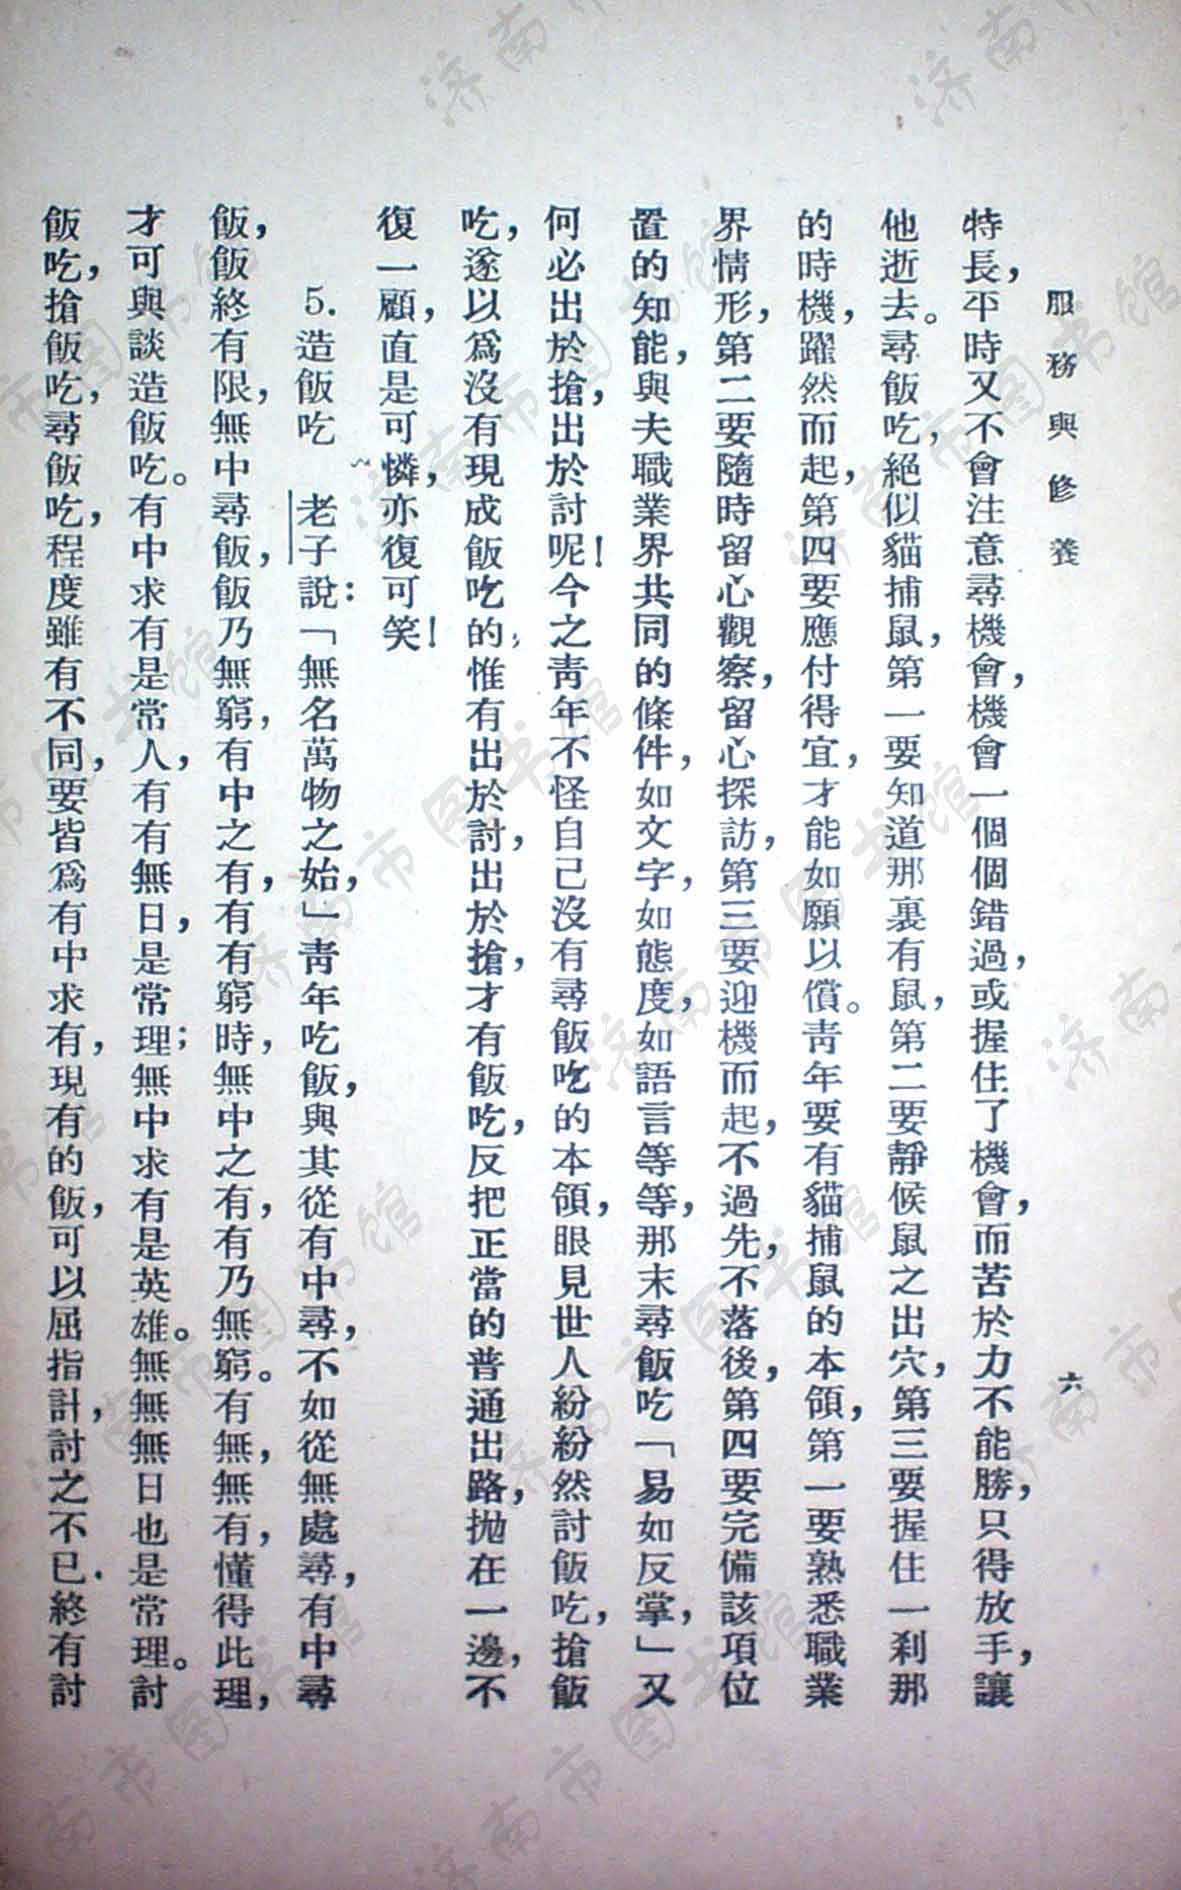 服務與修養
六
特長，平時又不會注意尋機會，機會一個個錯過，或握住了機會，而苦於力不能勝，只得放手，讓
他逝去。尋飯吃，絕似貓捕鼠，第一要知道那裏有鼠，第二要靜候鼠之出穴，第三要握住一剎那
的時機，躍然而起，第四要應付得宜，才能如願以償。青年要有貓捕鼠的本領，第一要熟悉職業
界情形，第二要隨時留心觀察，留心探訪，第三要迎機而起，不過先，不落後，第四要完備該項位
置的知能，與夫職業界共同的條件，如文字，如態度，如語言等等，那末尋飯吃「易如反掌，」又
何必出於搶，出於討呢！今之青年不怪自己沒有尋飯吃的本領，眼見世人紛紛然討飯吃，搶飯
吃，遂以爲沒有現成飯吃的，惟有出於討，出於搶，才有飯吃，反把正當的普通出路，拋在一邊，不
復一顧，直是可憐，亦復可笑！
5. 造飯吃　老子說：「無名萬物之始，」青年吃飯，與其從有中尋，不如從無處尋，有中尋
飯，飯終有限，無中尋飯，飯乃無窮，有中之有，有有窮時，無中之有，有乃無窮。有無，無有，懂得此理，
才可與談造飯吃。有中求有是常人，有有無日，是常理；無中求有是英雄。無無無日也是常理。討
飯吃，搶飯吃，尋飯吃，程度雖有不同，要皆爲有中求有，現有的飯，可以屈指計，討之不已．終有討
济南市图书馆